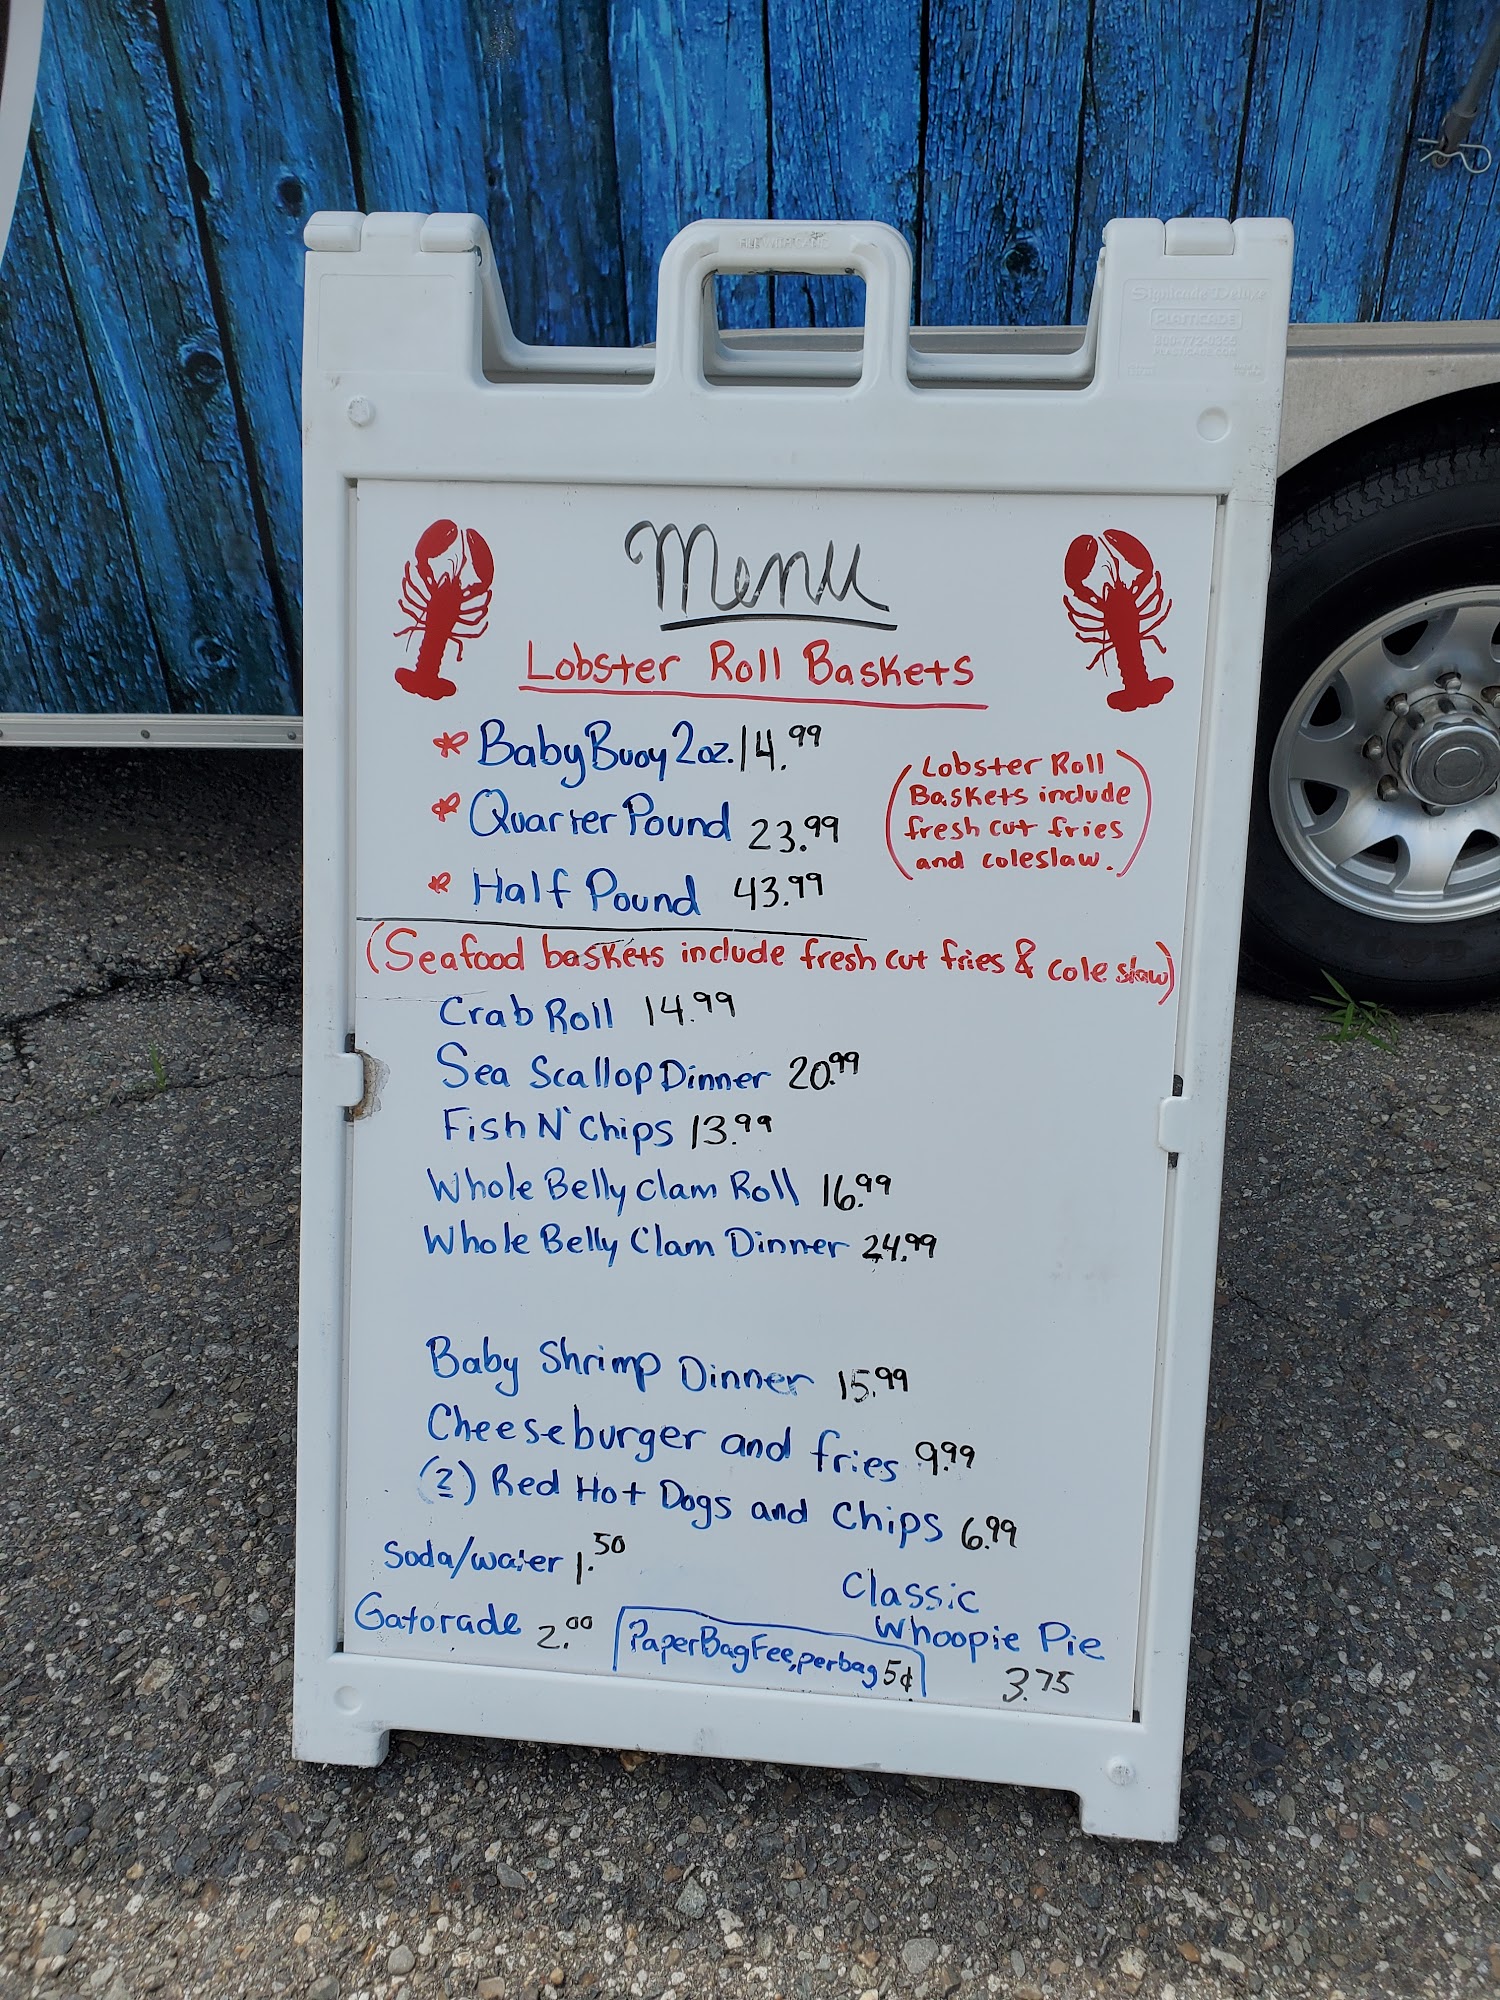 Signicade Deluxe
PLASTICADE
800-772-0355
PLASTICADE.COM
Menu
Lobster Roll Baskets
* Baby Buoy 2oz. 14.99
* Quarter Pound 23.99
* Half Pound 43.99
(Lobster Roll
Baskets include
fresh cut fries
and coleslaw.)
(Seafood baskets include fresh cut fries & cole slaw)
Crab Roll 14.99
Sea Scallop Dinner 20.99
Fish N' Chips 13.99
Whole Belly Clam Roll 16.99
Whole Belly Clam Dinner 24.99
Baby Shrimp Dinner 15.99
Cheeseburger and fries 9.99
(2) Red Hot Dogs and Chips 6.99
Soda/water 1.50
Gatorade 2.00
Paper Bag Fee, per bag 5¢
Classic
Whoopie Pie
3.75